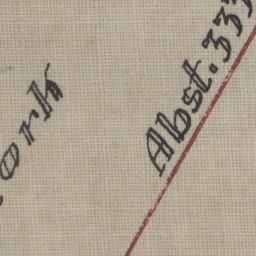 ork
Abst. 333